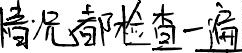 情况都检查一遍